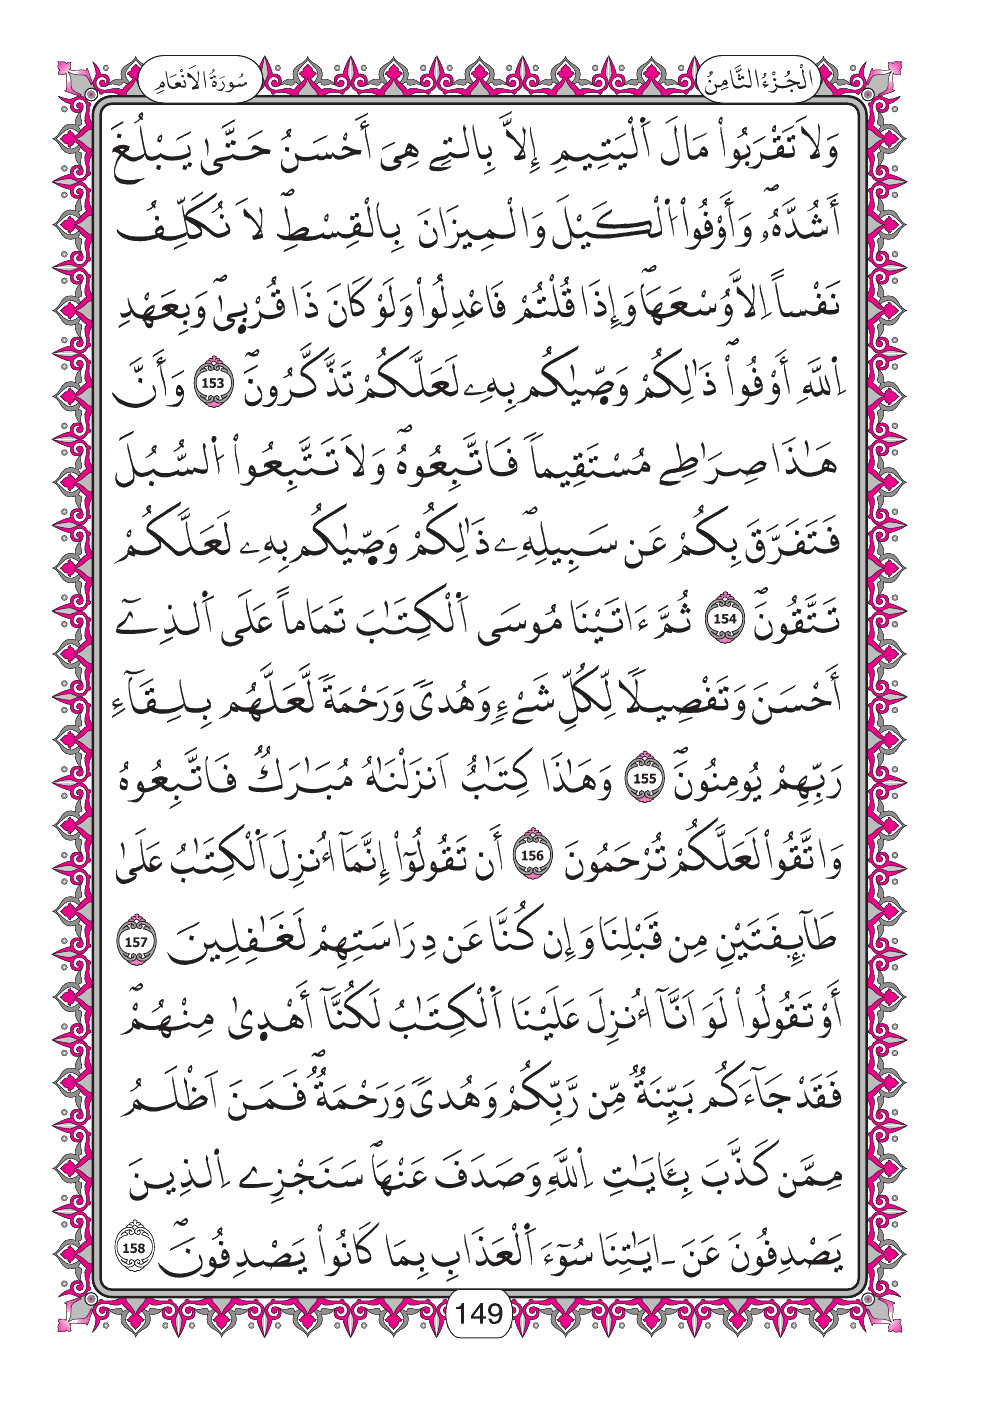 الْجُزْءُ الثَّامِنُ
سُورَةُ الاَنْعَامِ
وَلاَ تَقْرَبُواْ مَالَ اَ۬لْيَتِيمِ إِلاَّ بِالتِے هِيَ أَحْسَنُ حَتَّىٰ يَبْلُغَ
أَشُدَّهُۥۖ وَأَوْفُواْ اُ۬لْكَيْلَ وَالْمِيزَانَ بِالْقِسْطِۖ لاَ نُكَلِّفُ
نَفْساً اِلاَّ وُسْعَهَاۖ وَإِذَا قُلْتُمْ فَاعْدِلُواْ وَلَوْ كَانَ ذَا قُرْبىٰۖ وَبِعَهْدِ
اِ۬للَّهِ أَوْفُواْۖ ذَٰلِكُمْ وَصّ۪يٰكُم بِهِۦ لَعَلَّكُمْ تَذَّكَّرُونَۖ 153 وَأَنَّ
هَٰذَا صِرَٰطِے مُسْتَقِيماً فَاتَّبِعُوهُۖ وَلاَ تَتَّبِعُواْ اُ۬لسُّبُلَ
فَتَفَرَّقَ بِكُمْ عَن سَبِيلِهِۦۖ ذَٰلِكُمْ وَصّ۪يٰكُم بِهِۦ لَعَلَّكُمْ
تَتَّقُونَۖ 154 ثُمَّ ءَاتَيْنَا مُوسَى اَ۬لْكِتَٰبَ تَمَاماً عَلَى اَ۬لذِےٓ
أَحْسَنَ وَتَفْصِيلًا لِّكُلِّ شَےْءٖ وَهُدىً وَرَحْمَةً لَّعَلَّهُم بِلِقَآءِ
رَبِّهِمْ يُومِنُونَۖ 155 وَهَٰذَا كِتَٰبٌ اَنزَلْنَٰهُ مُبَٰرَكٌ فَاتَّبِعُوهُ
وَاتَّقُواْ لَعَلَّكُمْ تُرْحَمُونَ 156 أَن تَقُولُوٓاْ إِنَّمَآ أُنزِلَ اَ۬لْكِتَٰبُ عَلَىٰ
طَآئِفَتَيْنِ مِن قَبْلِنَا وَإِن كُنَّا عَن دِرَاسَتِهِمْ لَغَٰفِلِينَ 157
أَوْ تَقُولُواْ لَوَ اَنَّآ أُنزِلَ عَلَيْنَا اَ۬لْكِتَٰبُ لَكُنَّآ أَهْد۪ىٰ مِنْهُمْۖ
فَقَدْ جَآءَكُم بَيِّنَةٌ مِّن رَّبِّكُمْ وَهُدىً وَرَحْمَةٌۖ فَمَنَ اَظْلَمُ
مِمَّن كَذَّبَ بِـَٔايَٰتِ اِ۬للَّهِ وَصَدَفَ عَنْهَاۖ سَنَجْزِے اِ۬لذِينَ
يَصْدِفُونَ عَنَ ـ ايَٰتِنَا سُوٓءَ اَ۬لْعَذَابِ بِمَا كَانُواْ يَصْدِفُونَۖ 158
149